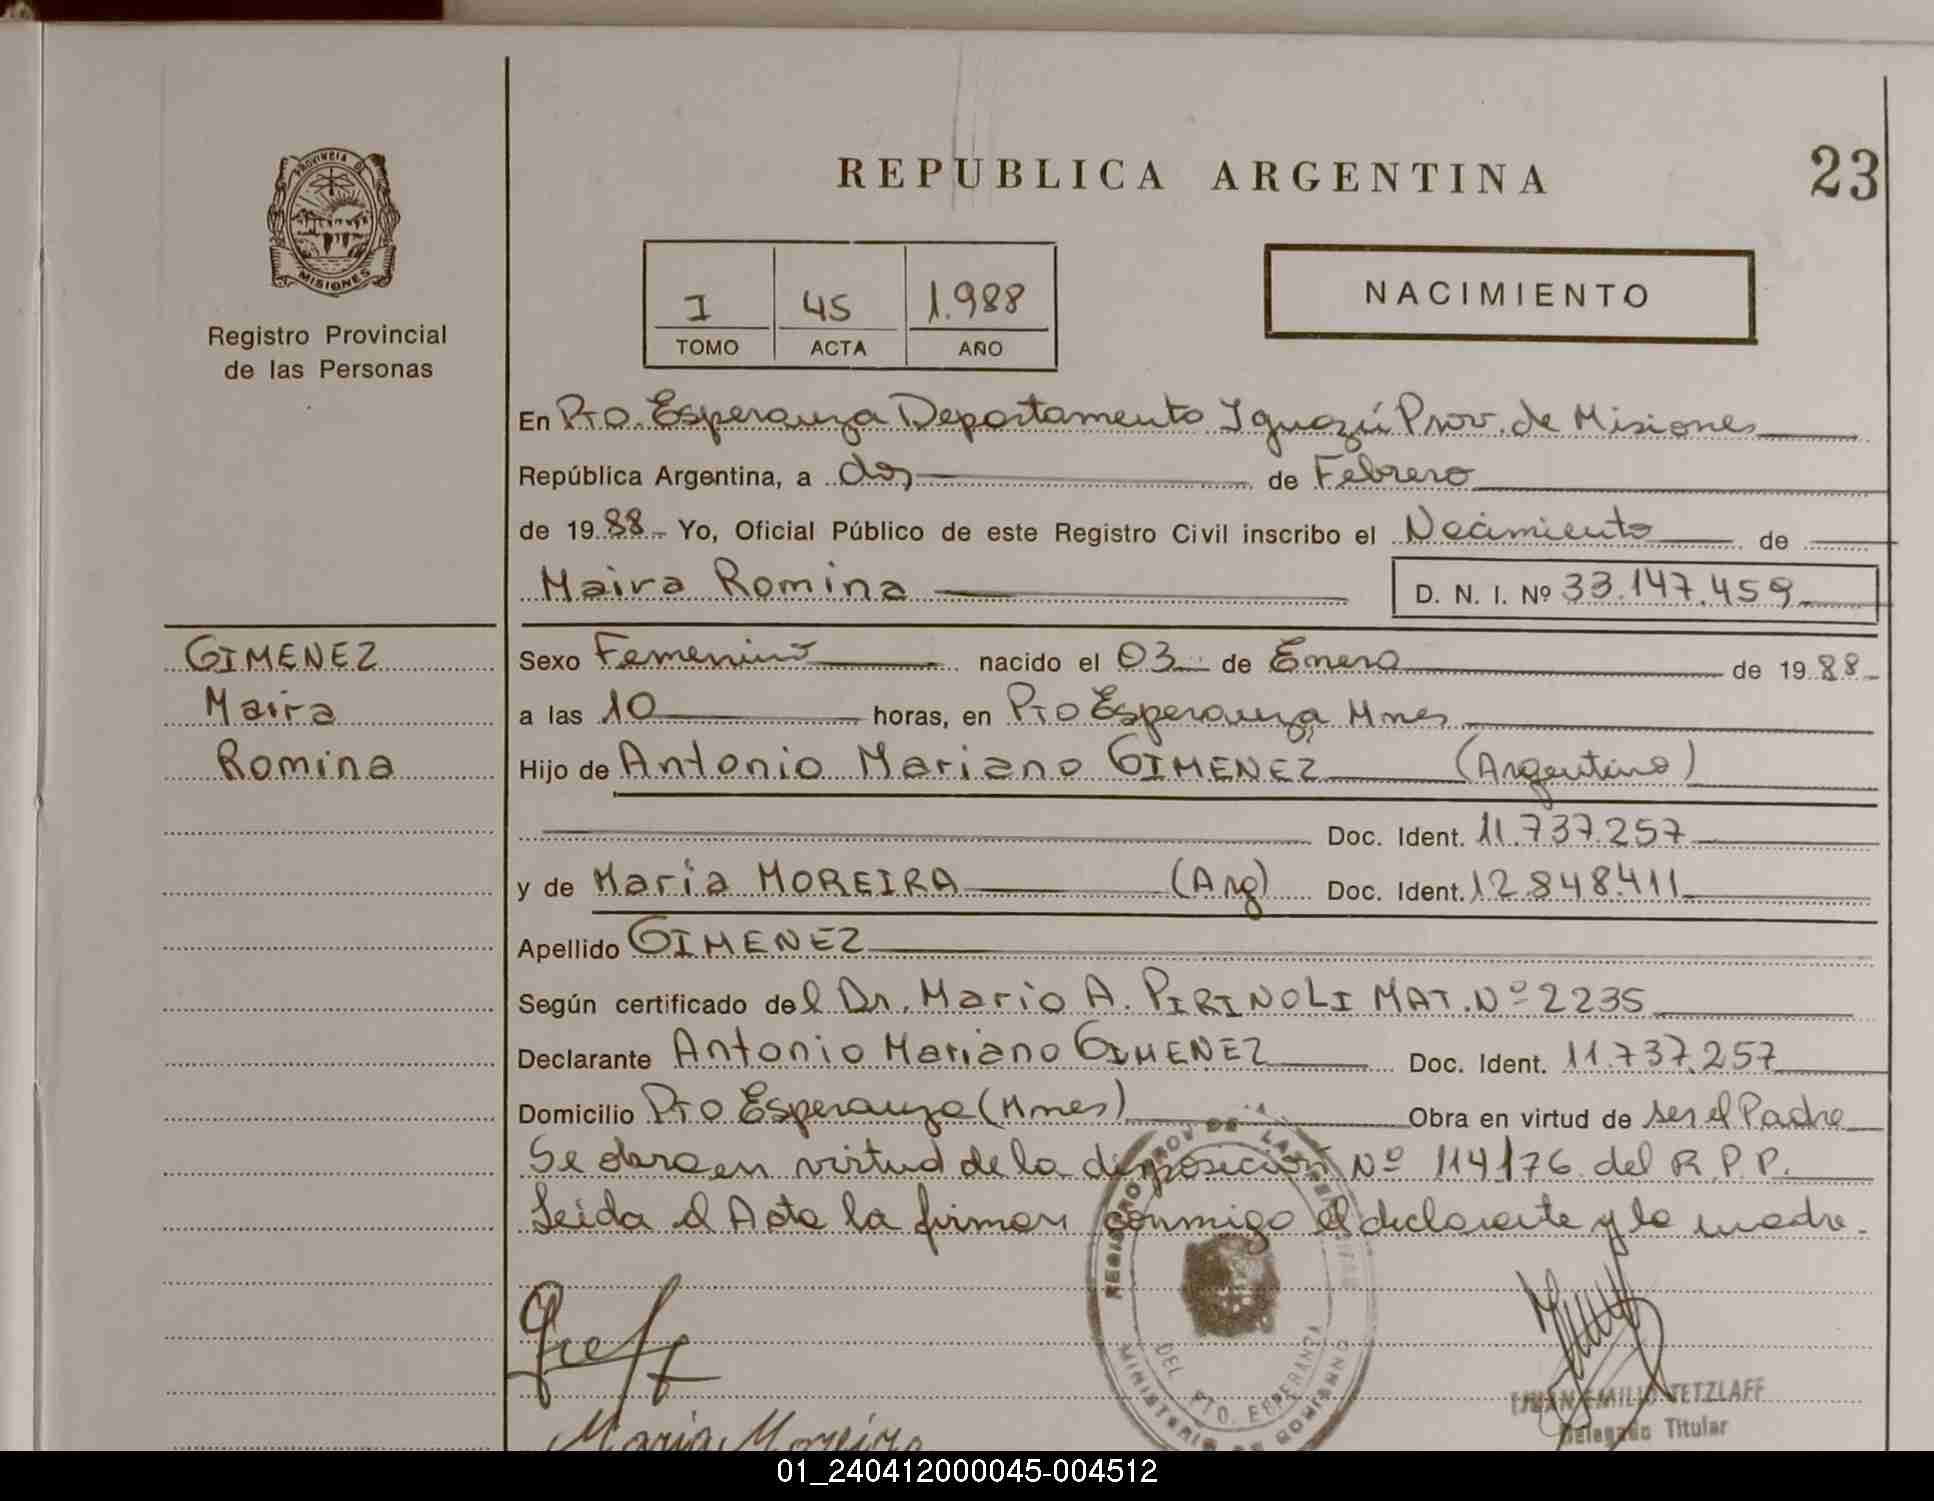 PROVINCIA DE
MISIONES
Registro Provincial
de las Personas
REPUBLICA ARGENTINA
23
I 45 1.988
TOMO ACTA AÑO
NACIMIENTO
En Pto. Esperanza Departamento Iguazú Prov. de Misiones
República Argentina, a dos de Febrero
de 19 88 Yo, Oficial Público de este Registro Civil inscribo el Nacimiento de
Maira Romina D. N. I. Nº 33.147.459
GIMENEZ
Maira
Romina
Sexo Femenino nacido el 03 de Enero de 19 88
a las 10 horas, en Pto Esperanza, Mnes
Hijo de Antonio Mariano GIMENEZ (Argentino)
Doc. Ident. 11.737.257
y de Maria MOREIRA (Arg) Doc. Ident. 12.848.411
Apellido GIMENEZ
Según certificado del Dr. Mario A. PIRINOLI MAT. Nº 2235
Declarante Antonio Mariano GIMENEZ Doc. Ident. 11.737.257
Domicilio Pto Esperanza (Mnes) Obra en virtud de ser el Padre
Se obra en virtud de la disposición Nº 114/76 del R.P.P.
Leida el Acta la firman conmigo el declarante y la madre.
REGISTRO PROV DE LAS
MINISTERIO DE GOBIERNO
DEL PTO. ESPERANZA
JUAN EMILIO TETZLAFF
Delegado Titular
Maria Moreira
01_240412000045-004512